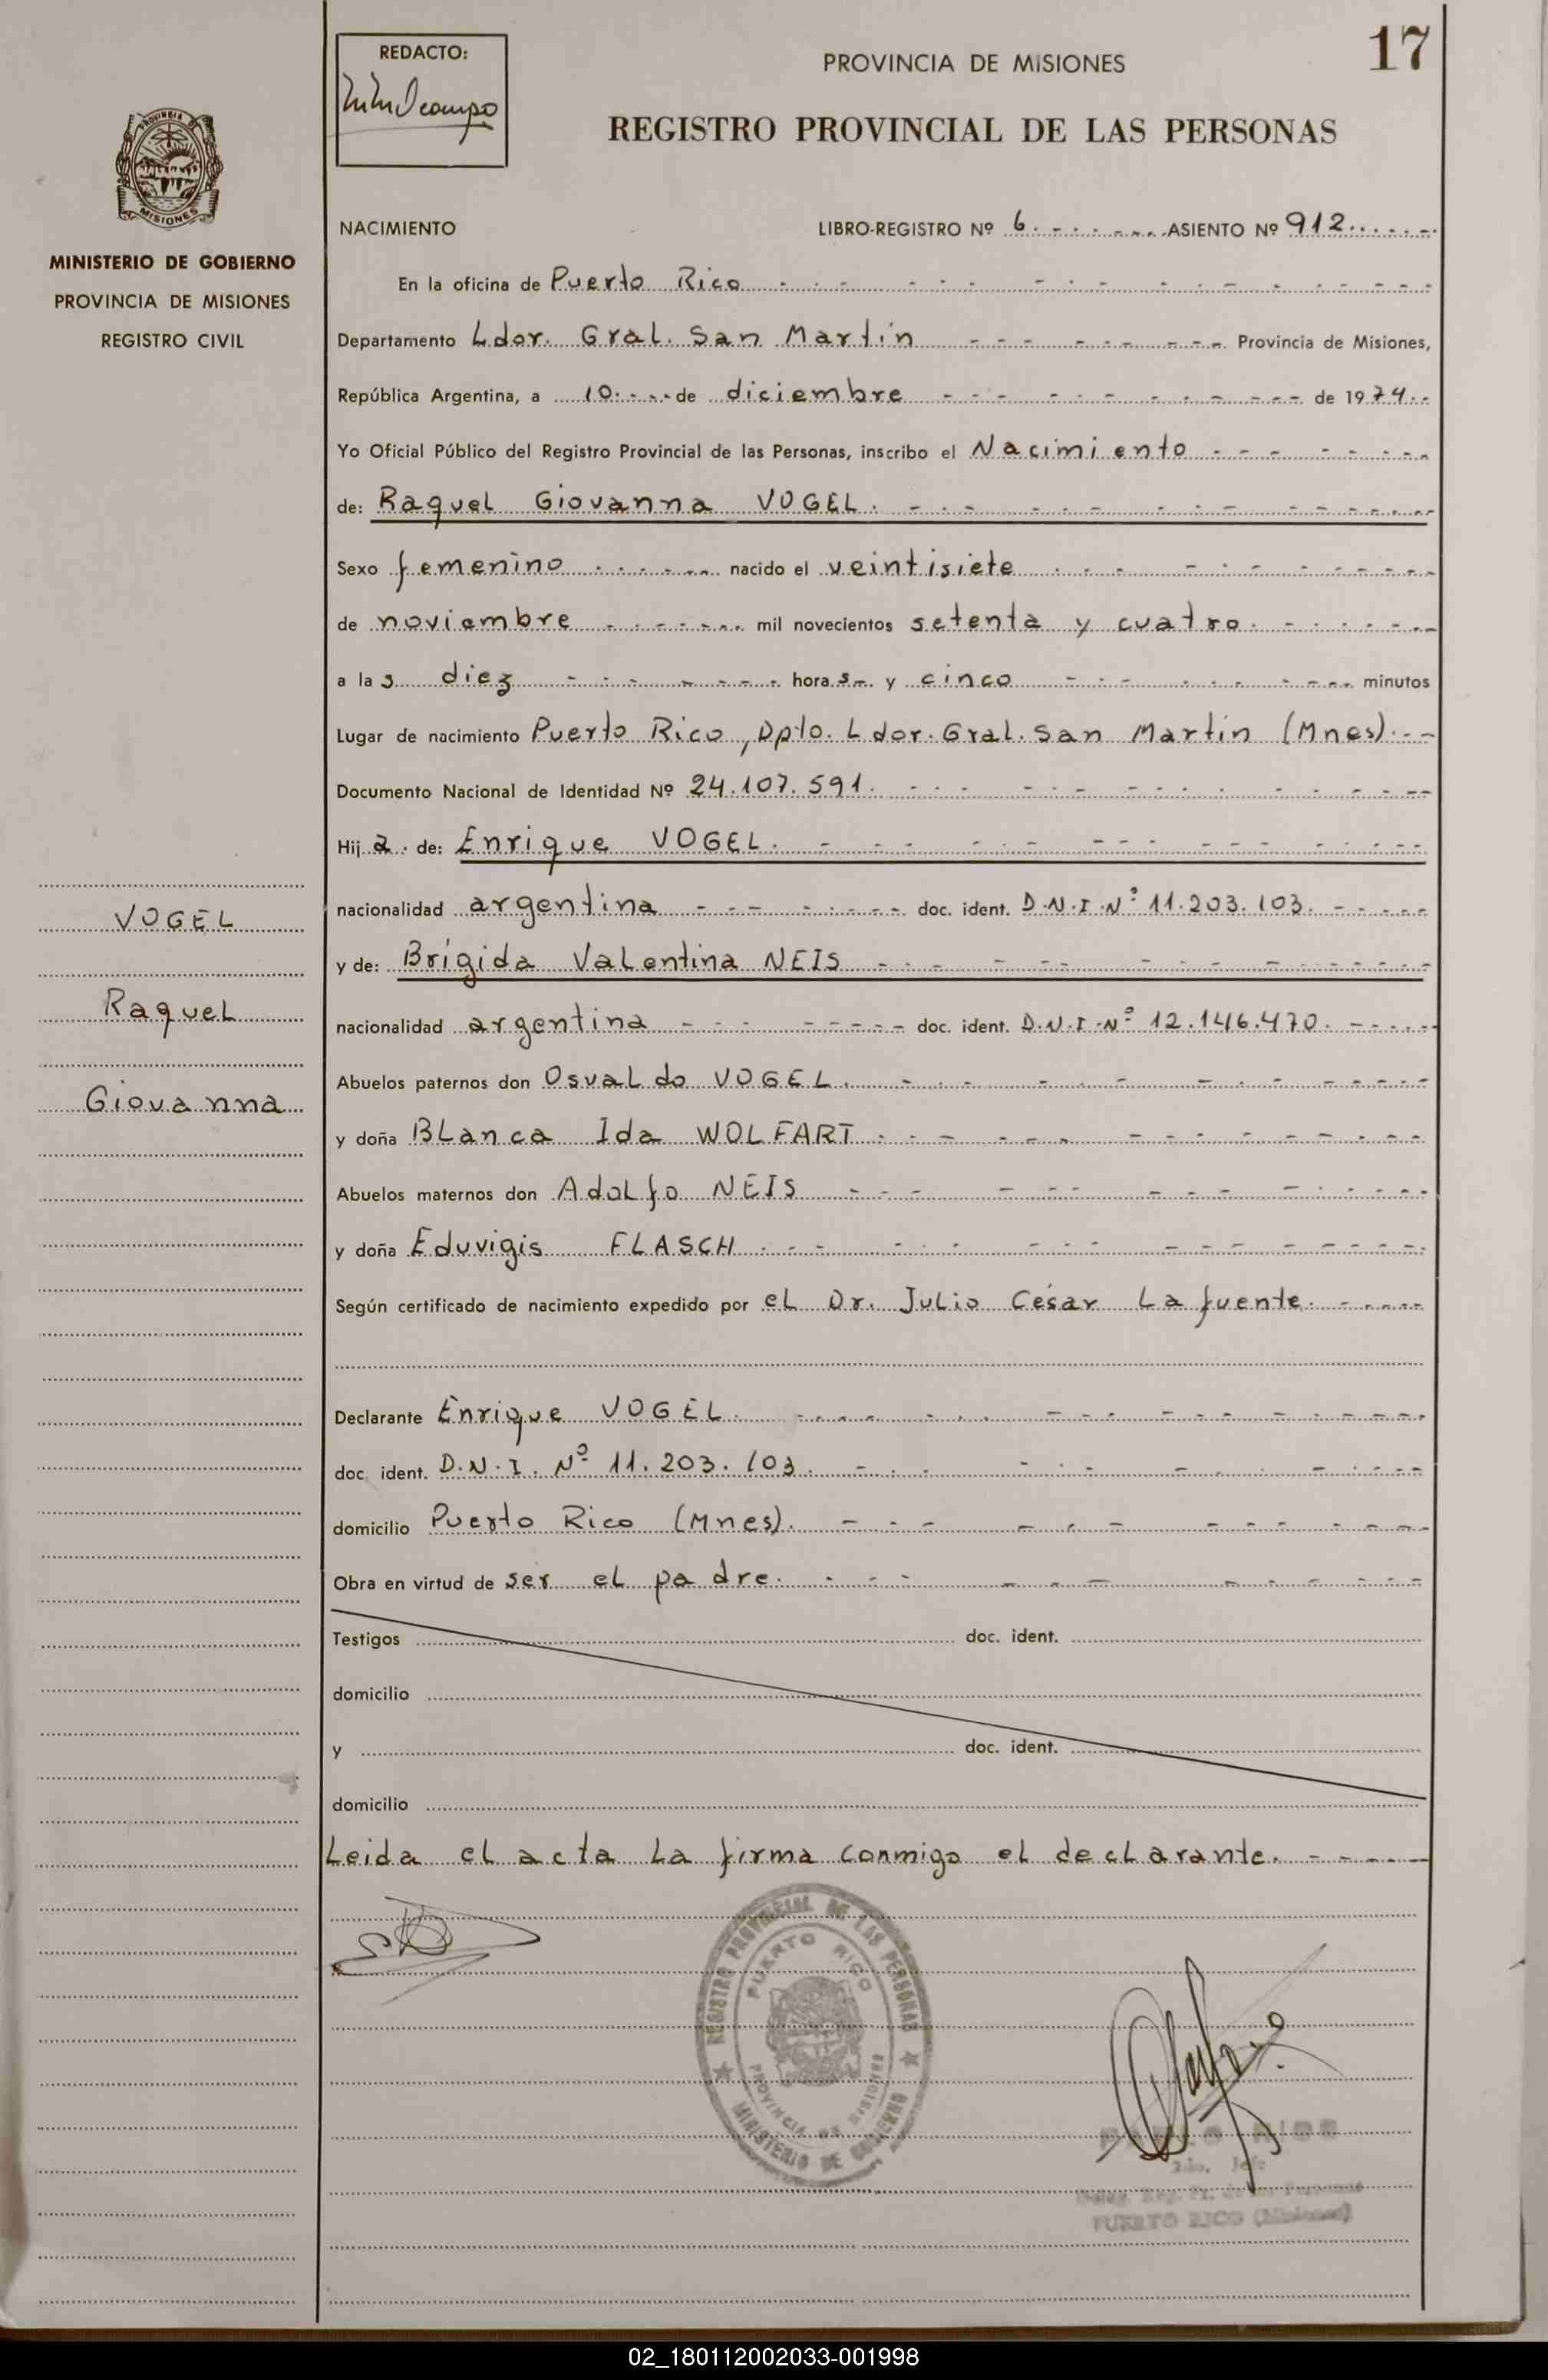 17
REDACTO:
PROVINCIA DE MISIONES
REGISTRO PROVINCIAL DE LAS PERSONAS
PROVINCIA DE
MISIONES
MINISTERIO DE GOBIERNO
PROVINCIA DE MISIONES
REGISTRO CIVIL
NACIMIENTO LIBRO-REGISTRO Nº 6 ASIENTO Nº 912
En la oficina de Puerto Rico
Departamento Ldor. Gral. San Martín Provincia de Misiones,
República Argentina, a 10 de diciembre de 1974
Yo Oficial Público del Registro Provincial de las Personas, inscribo el Nacimiento
de: Raquel Giovanna VOGEL.
Sexo femenino nacido el veintisiete
de noviembre mil novecientos setenta y cuatro.
a las diez horas y cinco minutos
Lugar de nacimiento Puerto Rico, Dpto. Ldor. Gral. San Martín (Mnes).
Documento Nacional de Identidad Nº 24.107.591.
Hija de: Enrique VOGEL.
nacionalidad argentina doc. ident. D.N.I. Nº 11.203.103.
y de: Brígida Valentina NEIS
nacionalidad argentina doc. ident. D.N.I. Nº 12.146.470.
Abuelos paternos don Osvaldo VOGEL.
y doña Blanca Ida WOLFART
Abuelos maternos don Adolfo NEIS
y doña Eduvigis FLASCH
Según certificado de nacimiento expedido por el Dr. Julio César Lafuente.
Declarante Enrique VOGEL.
doc. ident. D.N.I. Nº 11.203.103.
domicilio Puerto Rico (Mnes).
Obra en virtud de ser el padre.
Testigos doc. ident.
domicilio
y doc. ident.
domicilio
Leida el acta la firma conmigo el declarante.
VOGEL
Raquel
Giovanna
REGISTRO PROVINCIAL DE LAS PERSONAS
PUERTO RICO
PROVINCIA DE MISIONES
MINISTERIO DE GOBIERNO
PUERTO RICO (Misiones)
02_180112002033-001998